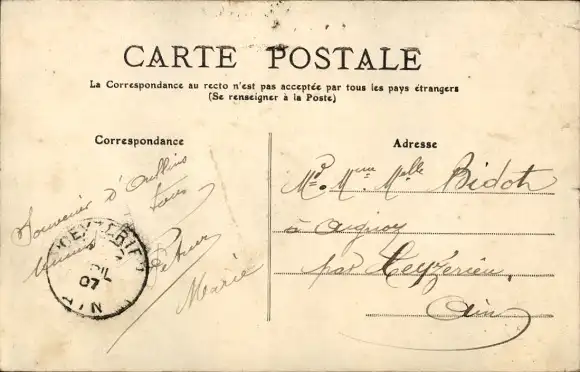 CARTE POSTALE
La Correspondance au recto n'est pas acceptée par tous les pays étrangers
(Se renseigner à la Poste)
Correspondance
Souvenir d'Oullins
Marie
CEYZERIEU
07
AIN
Adresse
Mr. Mme. Melle Bidoh
à Aignoz
par Ceyzerieu
Ain